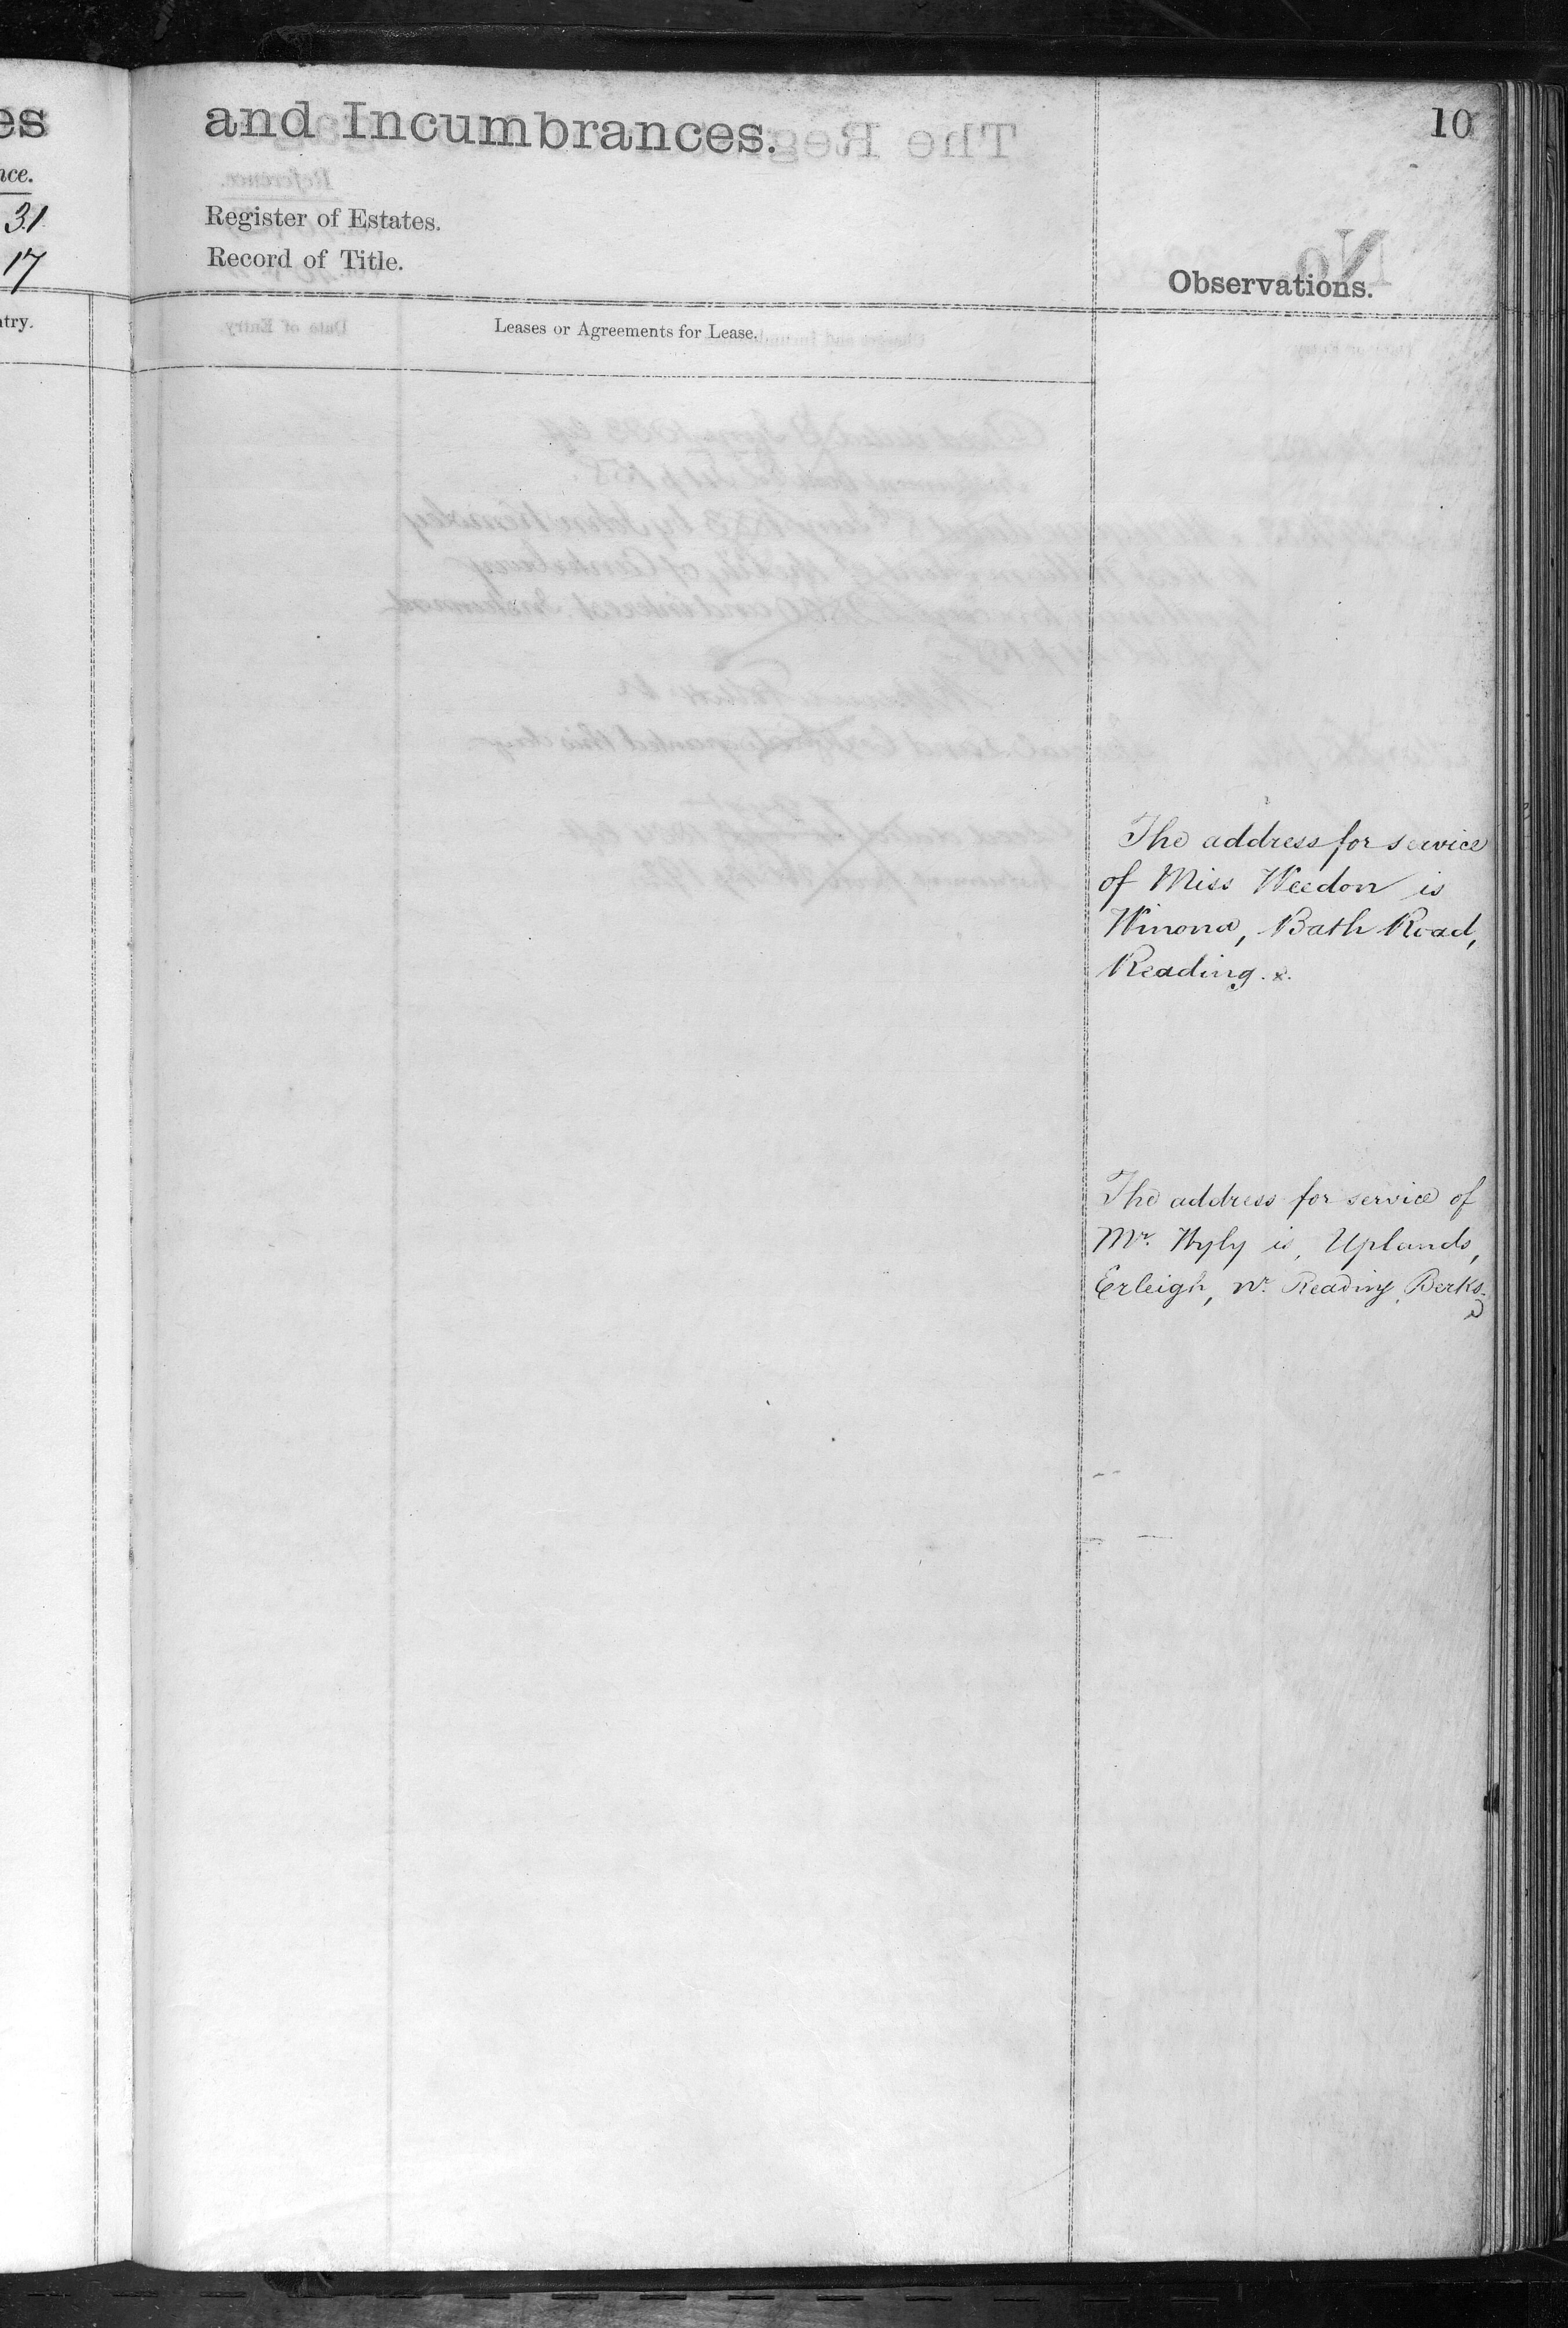 es
nce.
31
17
ntry.
and Incumbrances.
10
Register of Estates.
Record of Title.
Observations.
Leases or Agreements for Lease.
The address for service
of Miss Weedon is
Winona, Bath Road,
Reading. x.
The address for service of
Mr. Wyly is, Uplands,
Erleigh, nr. Reading, Berks.